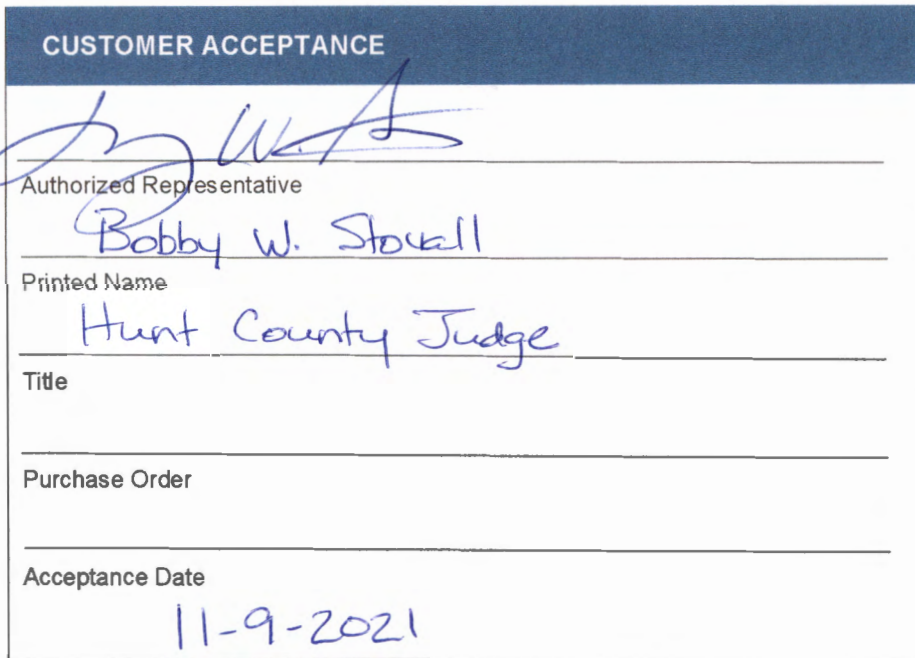 CUSTOMER ACCEPTANCE
Authorized Representative
Bobby W. Stovall
Printed Name
Hunt County Judge
Title
Purchase Order
Acceptance Date
11-9-2021